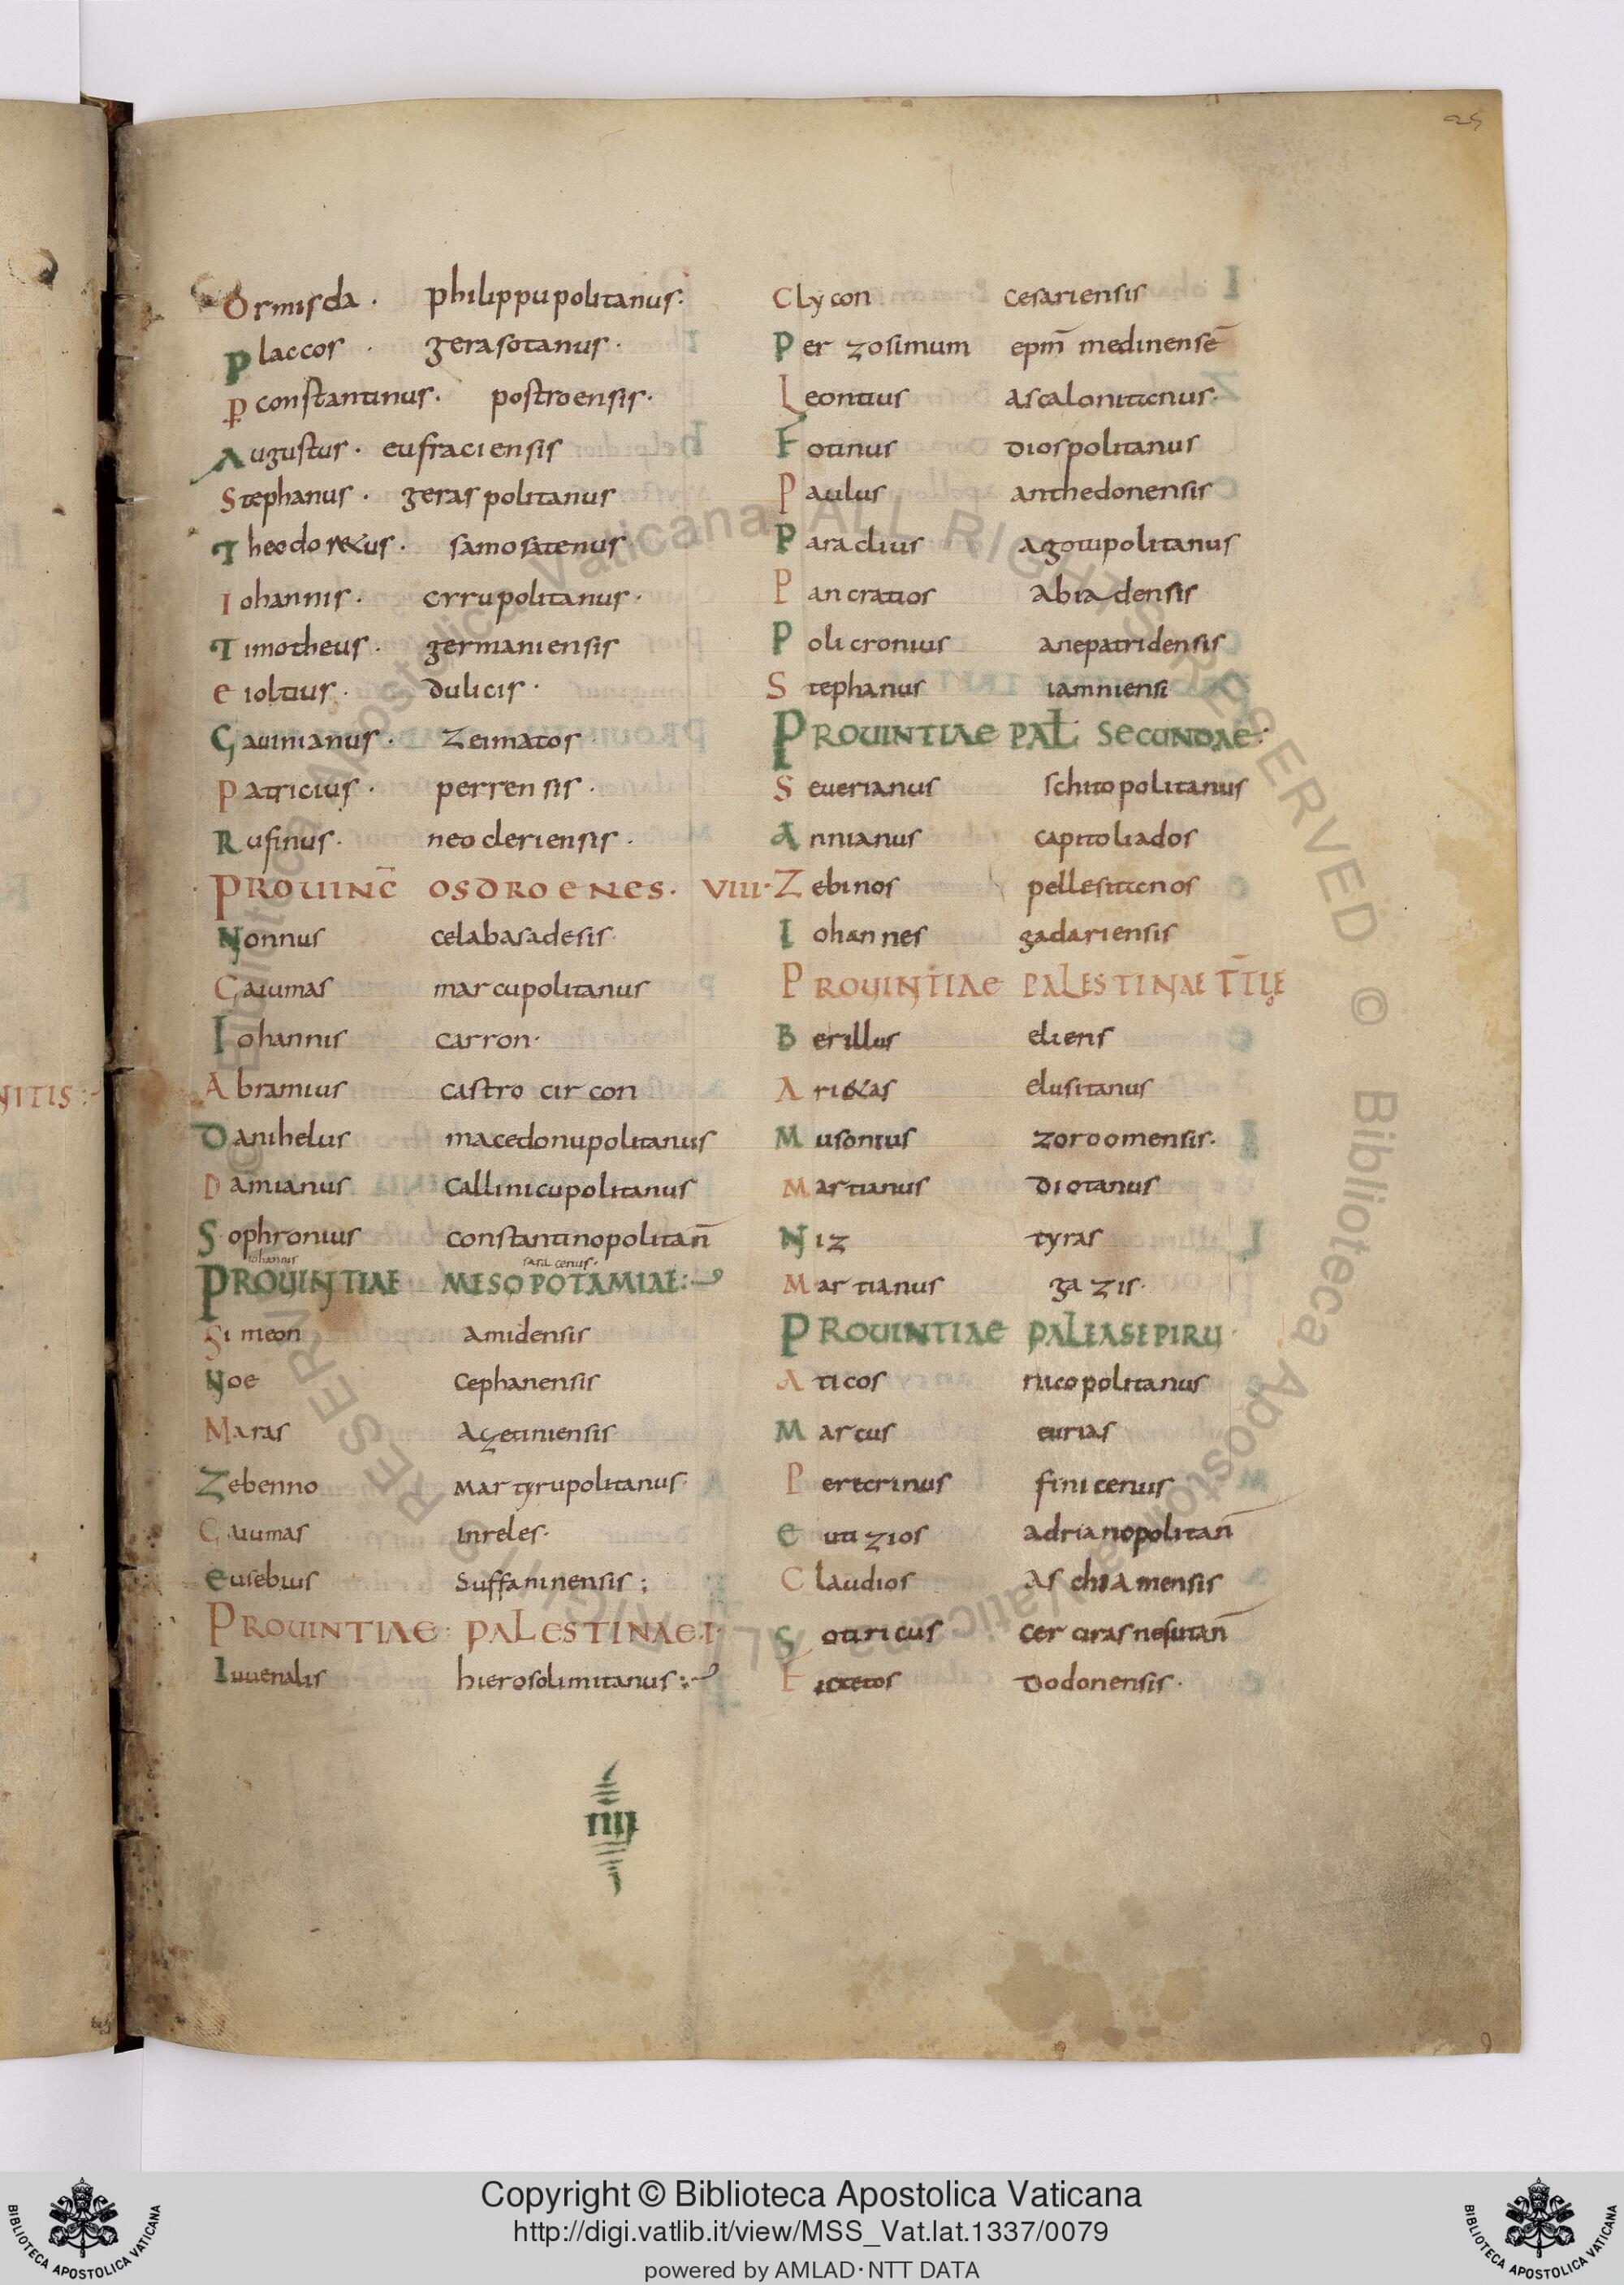 25
Ormisda . philippupolitanus:
placcos . gerasotanus .
p̱ constantinus . postroensis .
Augustus . eufraciensis
Stephanus . geraspolitanus
Theodor&us . samosatenus
Iohannis . cirrupolitanus .
Timotheus . germaniensis
eioltius . dulicis .
Gauinianus . zeumatos
Patricius . perrensis .
Rufinus . neoderiensis .
PROUINC̄ OSDROENES . VIII .
Nonnus celabasadesis
Caiumas marcupolitanus
Iohannis carron .
Abramius castro circon
Danihelus macedonupolitanus
Damianus callinicupolitanus
Sophronius constantinopolitan̄
iohannis saracenus .
PROUINTIAE MESOPOTAMIAE:
Simeon amidensis
Noe cephanensis
Maras azetiniensis
Zebenno martyrupolitanus
Caiumas inreles .
eusebius suffaninensis ;
PROUINTIAE PALESTINAE . I .
Iuuenalis hierosolimitanus :
Clycon cesariensis
Per zosimum ep̄m medinensē
Leontius ascalonitcnus .
Fotinus diospolitanus
Paulus anthedonensis
Paradius agotupolitanus
Pancratios abiadensis
Policronius anepatridensis
Stephanus iamniensi
PROUINTIAE PAL SECUNDAE :
Seuerianus schitopolitanus
Annianus capitoliados
Zebinos pellesitcnos
Iohannes gadariensis
PROUINTIAE PALESTINAE
Berillus eliens
Ari&as elusitanus
Musonius zoroomensis .
Martianus diotanus
Niz tyras
Martianus gazis .
PROUINTIAE PALEASEPIRU
Aticos nicopolitanus
Marcus eurias
Perecrinus finicenus
eutizios adrianopolitan̄
Claudios aschiamensis
Sotiricus
dodonensis .
IIII
NITIS :
Copyright © Biblioteca Apostolica Vaticana
http://digi.vatlib.it/view/MSS_Vat.lat.1337/0079
powered by AMLAD · NTT DATA
BIBLIOTECA APOSTOLICA VATICANA
BIBLIOTECA APOSTOLICA VATICANA
© Biblioteca Apostolica Vaticana ALL RIGHTS RESERVED © Biblioteca Apostolica Vaticana ALL RIGHTS RESERVED